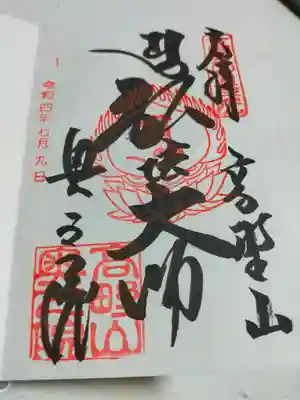 奉拝
高野山
弘法大師
奥之院
高野山
奥之院
令和四年七月九日